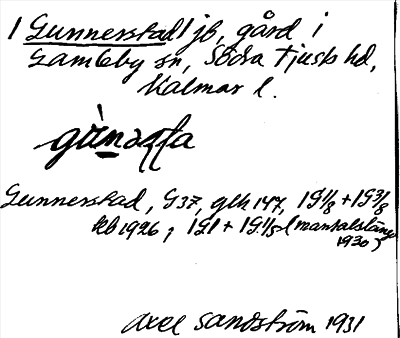 | Gunnerstad | jb, gård i
Gamleby sn, Södra Tjusts hd,
Kalmar l.
Gunnerstad, G37, gek 147, 1G1/8 + 1G3/8
kb 1926; 1G1 + 1G1/5 (mantalslängd
1930)
Axel Sandström 1931